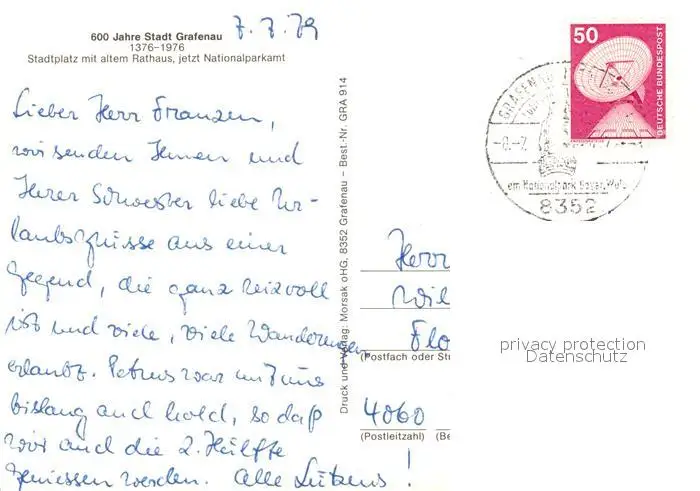 7.7.79
600 Jahre Stadt Grafenau
1376–1976
Stadtplatz mit altem Rathaus, jetzt Nationalparkamt
Lieber Herr Franzen,
wir senden Ihnen und
Ihrer Schwester liebe Ur-
laubsgrüsse aus einer
Gegend, die ganz reizvoll
ist und viele, viele Wanderungen
erlaubt. Petrus war mit uns
bislang auch hold, so daß
wir auch die 2. Hälfte
geniessen werden. Alle Lützens!
Druck und Verlag: Morsak oHG, 8352 Grafenau – Best.-Nr. GRA 914
50
DEUTSCHE BUNDESPOST
GRAFENAU
am Nationalpark Bayer. Wald
8352
Herrn
Wil
Flo
(Postfach oder Str
4060
(Postleitzahl) (Be
privacy protection
Datenschutz